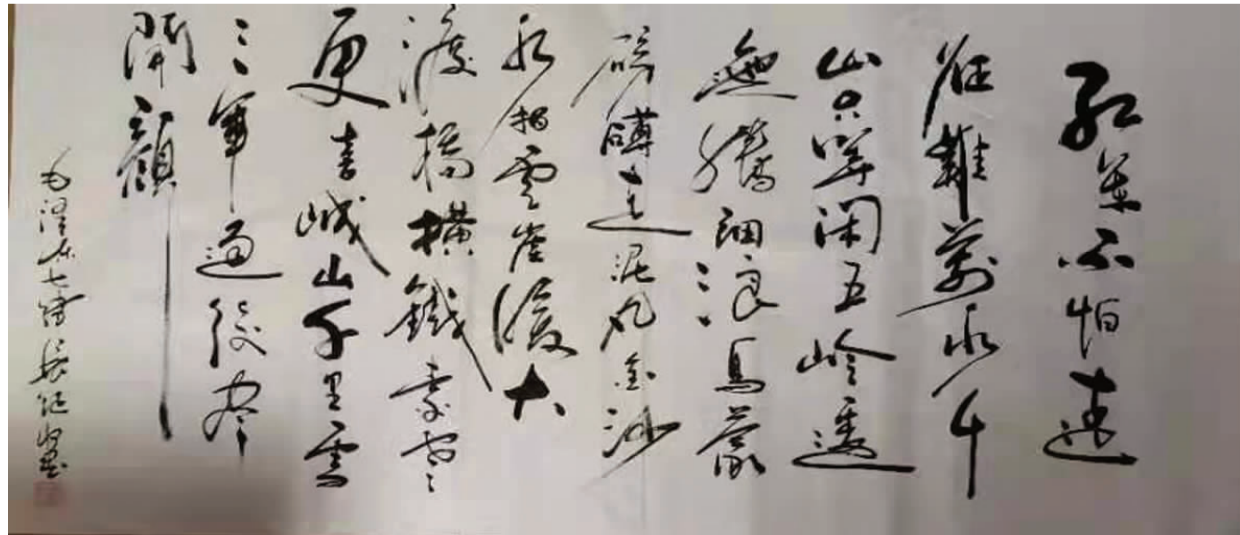 红军不怕远
征難萬水千
山只等闲五岭逶
迤騰細浪烏蒙
磅礴走泥丸金沙
水拍雲崖暖大
渡橋橫鐵索寒
更喜岷山千里雪
三軍過後盡
開顏
毛澤东七律